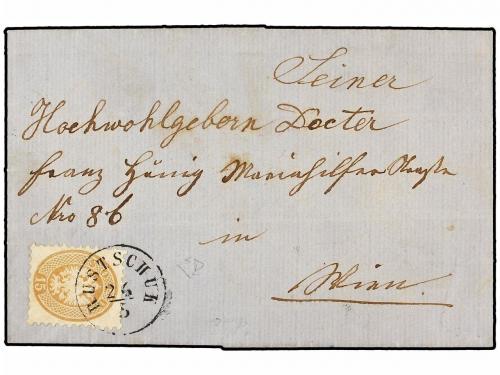 Seiner
Hochwohlgeborn Docter
Franz Hönig Mariahilfer Straße
Nro 86
in
Wien.
15
RUSTSCHUK
24/5